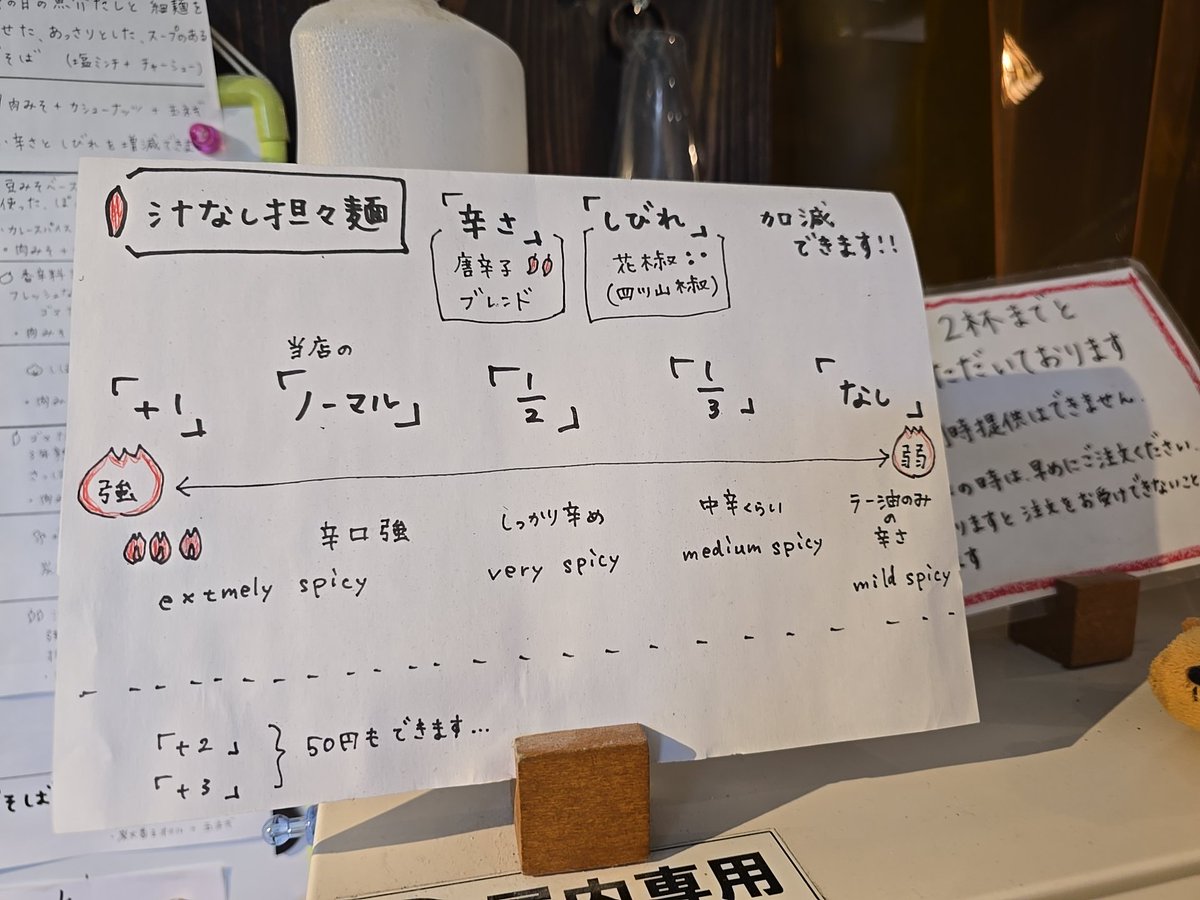 細麺を
せた、あっさりとした、スープのある
そば (塩ミンチ+チャーシュー)
肉みそ+カシューナッツ+玉ネギ
辛さとしびれを増減できま
汁なし担々麺
「辛さ」
唐辛子
ブレンド
「しびれ」
花椒
(四川山椒)
加減
できます!!
「+1」
当店の
「ノーマル」
「1/2」
「1/3」
「なし」
強
弱
辛口強
しっかり辛め
中辛くらい
ラー油のみ
の
辛さ
extmely spicy
very spicy
medium spicy
mild spicy
「+2」
「+3」
50円もできます...
2杯までと
ただいております
時提供はできません.
の時は、早めにご注文ください.
りますと注文をお受けできないこと
ます
豆みそベース
使った、ば
・カレースパイス
・肉みそ+
香辛料
フレッシュな
・肉みそ
そば
内専用